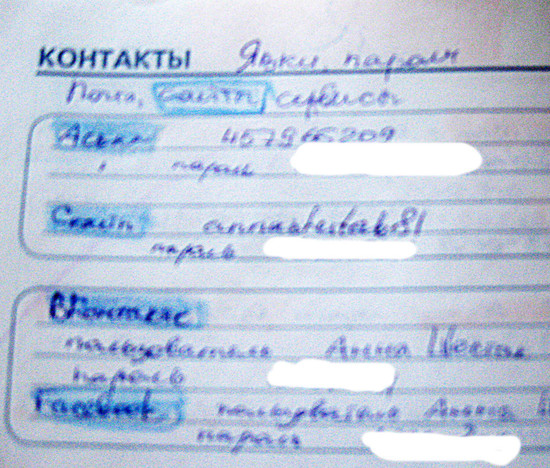 КОНТАКТЫ Явки, пароли
Почта, сайты, сервисы
Аська
пароль
Скайп
пароль
ВКонтакте
пользователь Анна
пароль
Facebook пользователь Анна
пароль